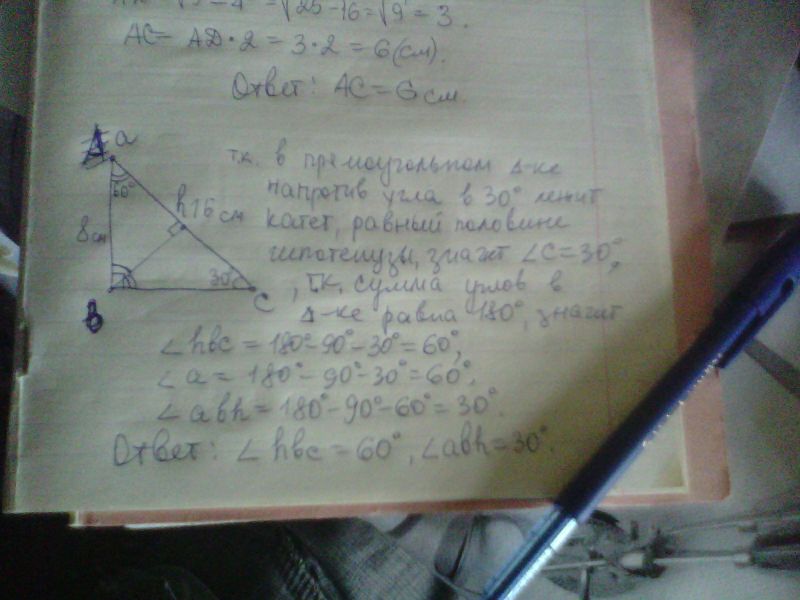 = √25-16 = √9 = 3.
AC = AD · 2 = 3 · 2 = 6 (см).
Ответ: AC = 6 см.
a
60°
8 см
h 16 см
30°
C
B
т.к. в прямоугольном Δ-ке
напротив угла в 30° лежит
катет, равный половине
гипотенузы, значит ∠C = 30°,
, т.к. сумма углов в
Δ-ке равна 180°, значит
∠hbc = 180°-90°-30° = 60°,
∠a = 180°-90°-30° = 60°,
∠abh = 180°-90°-60° = 30°.
Ответ: ∠hbc = 60°, ∠abh = 30°.